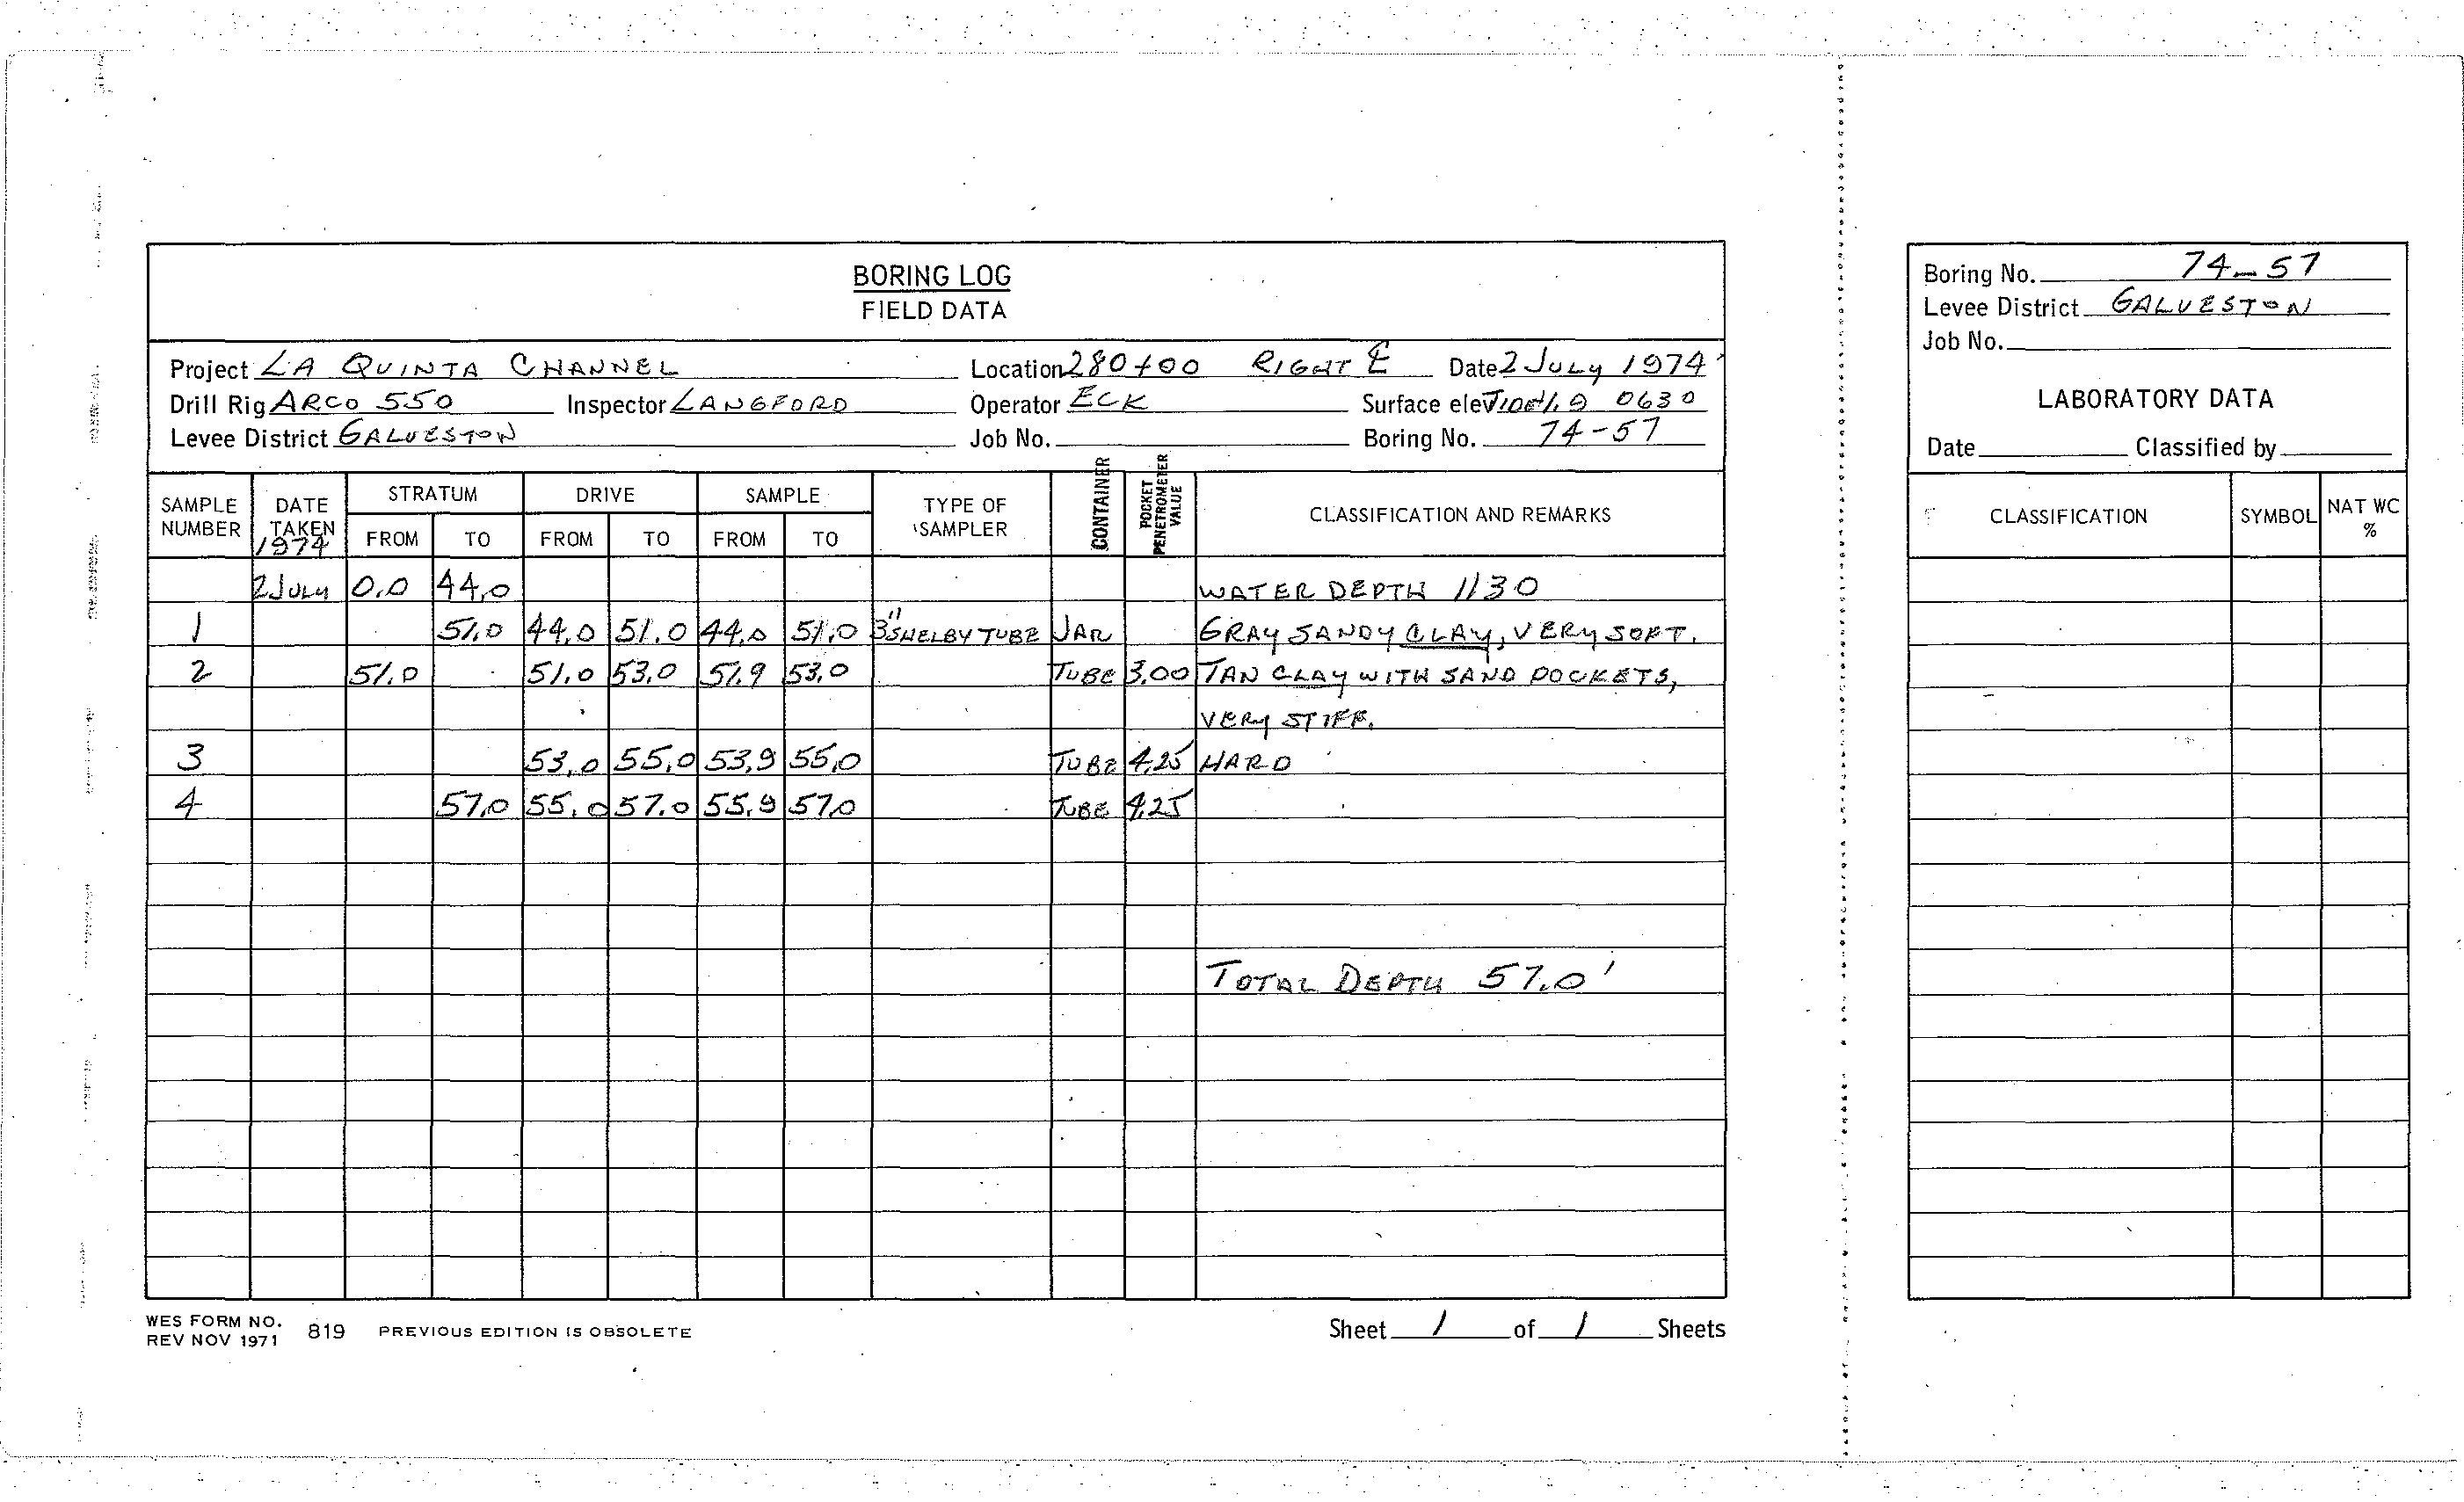 BORING LOG
FIELD DATA
Project LA QUINTA CHANNEL Location 280+00 RIGHT ℄ Date 2 JULY 1974
Drill Rig ARCO 550 Inspector LANGFORD Operator ECK Surface elev TIDE 1.9 0630
Levee District GALVESTON Job No. Boring No. 74-57
SAMPLE NUMBER DATE TAKEN 1974 STRATUM FROM TO DRIVE FROM TO SAMPLE FROM TO TYPE OF SAMPLER CONTAINER POCKET PENETROMETER VALUE CLASSIFICATION AND REMARKS
2 JULY 0.0 44.0 WATER DEPTH 1130
1 51.0 44.0 51.0 44.0 51.0 3" SHELBY TUBE JAR GRAY SANDY CLAY, VERY SOFT.
2 51.0 51.0 53.0 51.9 53.0 TUBE 3.00 TAN CLAY WITH SAND POCKETS,
VERY STIFF.
3 53.0 55.0 53.9 55.0 TUBE 4.25 HARD
4 57.0 55.0 57.0 55.9 57.0 TUBE 4.25
TOTAL DEPTH 57.0'
WES FORM NO. 819 PREVIOUS EDITION IS OBSOLETE
REV NOV 1971
Sheet 1 of 1 Sheets
Boring No. 74-57
Levee District GALVESTON
Job No.
LABORATORY DATA
Date Classified by
CLASSIFICATION SYMBOL NAT WC %